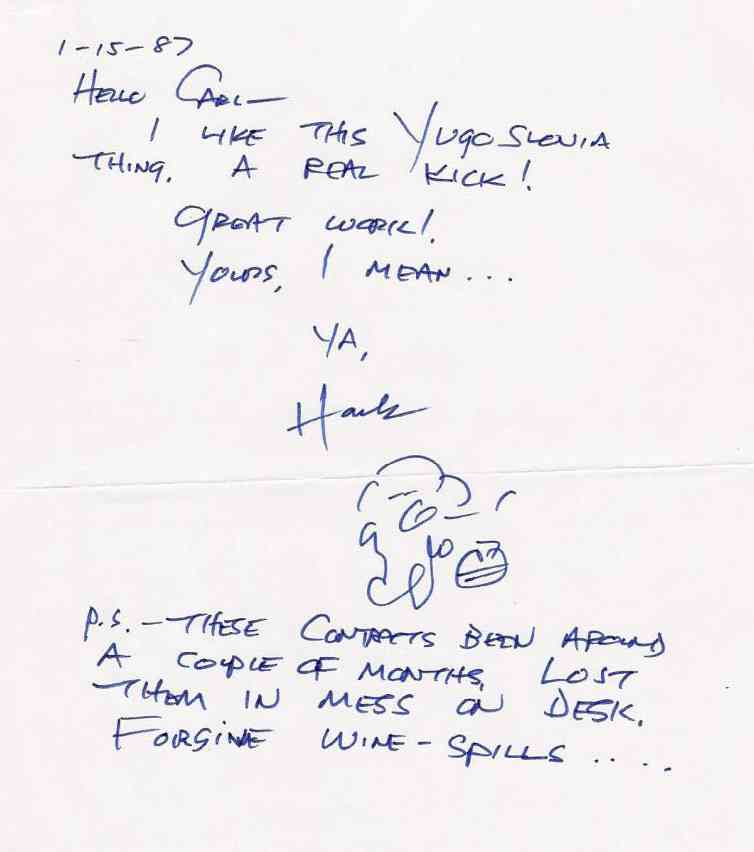 1-15-87
HELLO CARL—
I LIKE THIS YUGOSLOVIA
THING. A REAL KICK!
GREAT WORK!
YOURS, I MEAN...
YA,
Hank
P.S. — THESE CONTACTS BEEN AROUND
A COUPLE OF MONTHS, LOST
THEM IN MESS ON DESK.
FORGIVE WINE-SPILLS .....